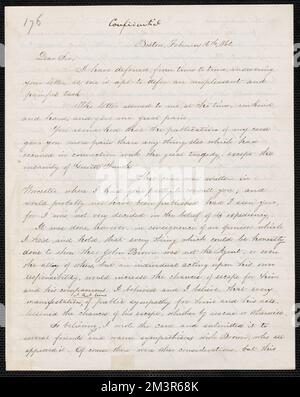 176
Confidential
Boston, February 16th 1860.
Dear Sir,
I have deferred, from time to time, answering
your letter as one is apt to defer an unpleasant and
painful task.
The letter seemed to me, at the time, unkind
and hard, and gave me great pain.
You remarked that the publication of my card
gave you more pain than any thing else which had
occurred in connection with the great tragedy, except the
insanity of Gerritt Smith.
written in
Worcester where I had
probably not have been published had I seen you,
for I was not very decided in the belief of its expediency.
It was done, however, in consequence of an opinion which
I held and hold, that every thing which could be honestly
done to show that John Brown was not the Agent, or even
the ally of others, but an individual acting upon his own
responsibility, would increase the chances of escape for him
and his companions. I believed and I believe that every
manifestation, of public sympathy for him and his acts,
lessened the chances of his escape, whether by rescue or otherwise.
So believing, I wrote the card and submitted it to
several friends and warm sympathisers with Brown, who all
approved it. Of course there were other considerations, but this
alamy
Image ID: 2M3R68K
www.alamy.com